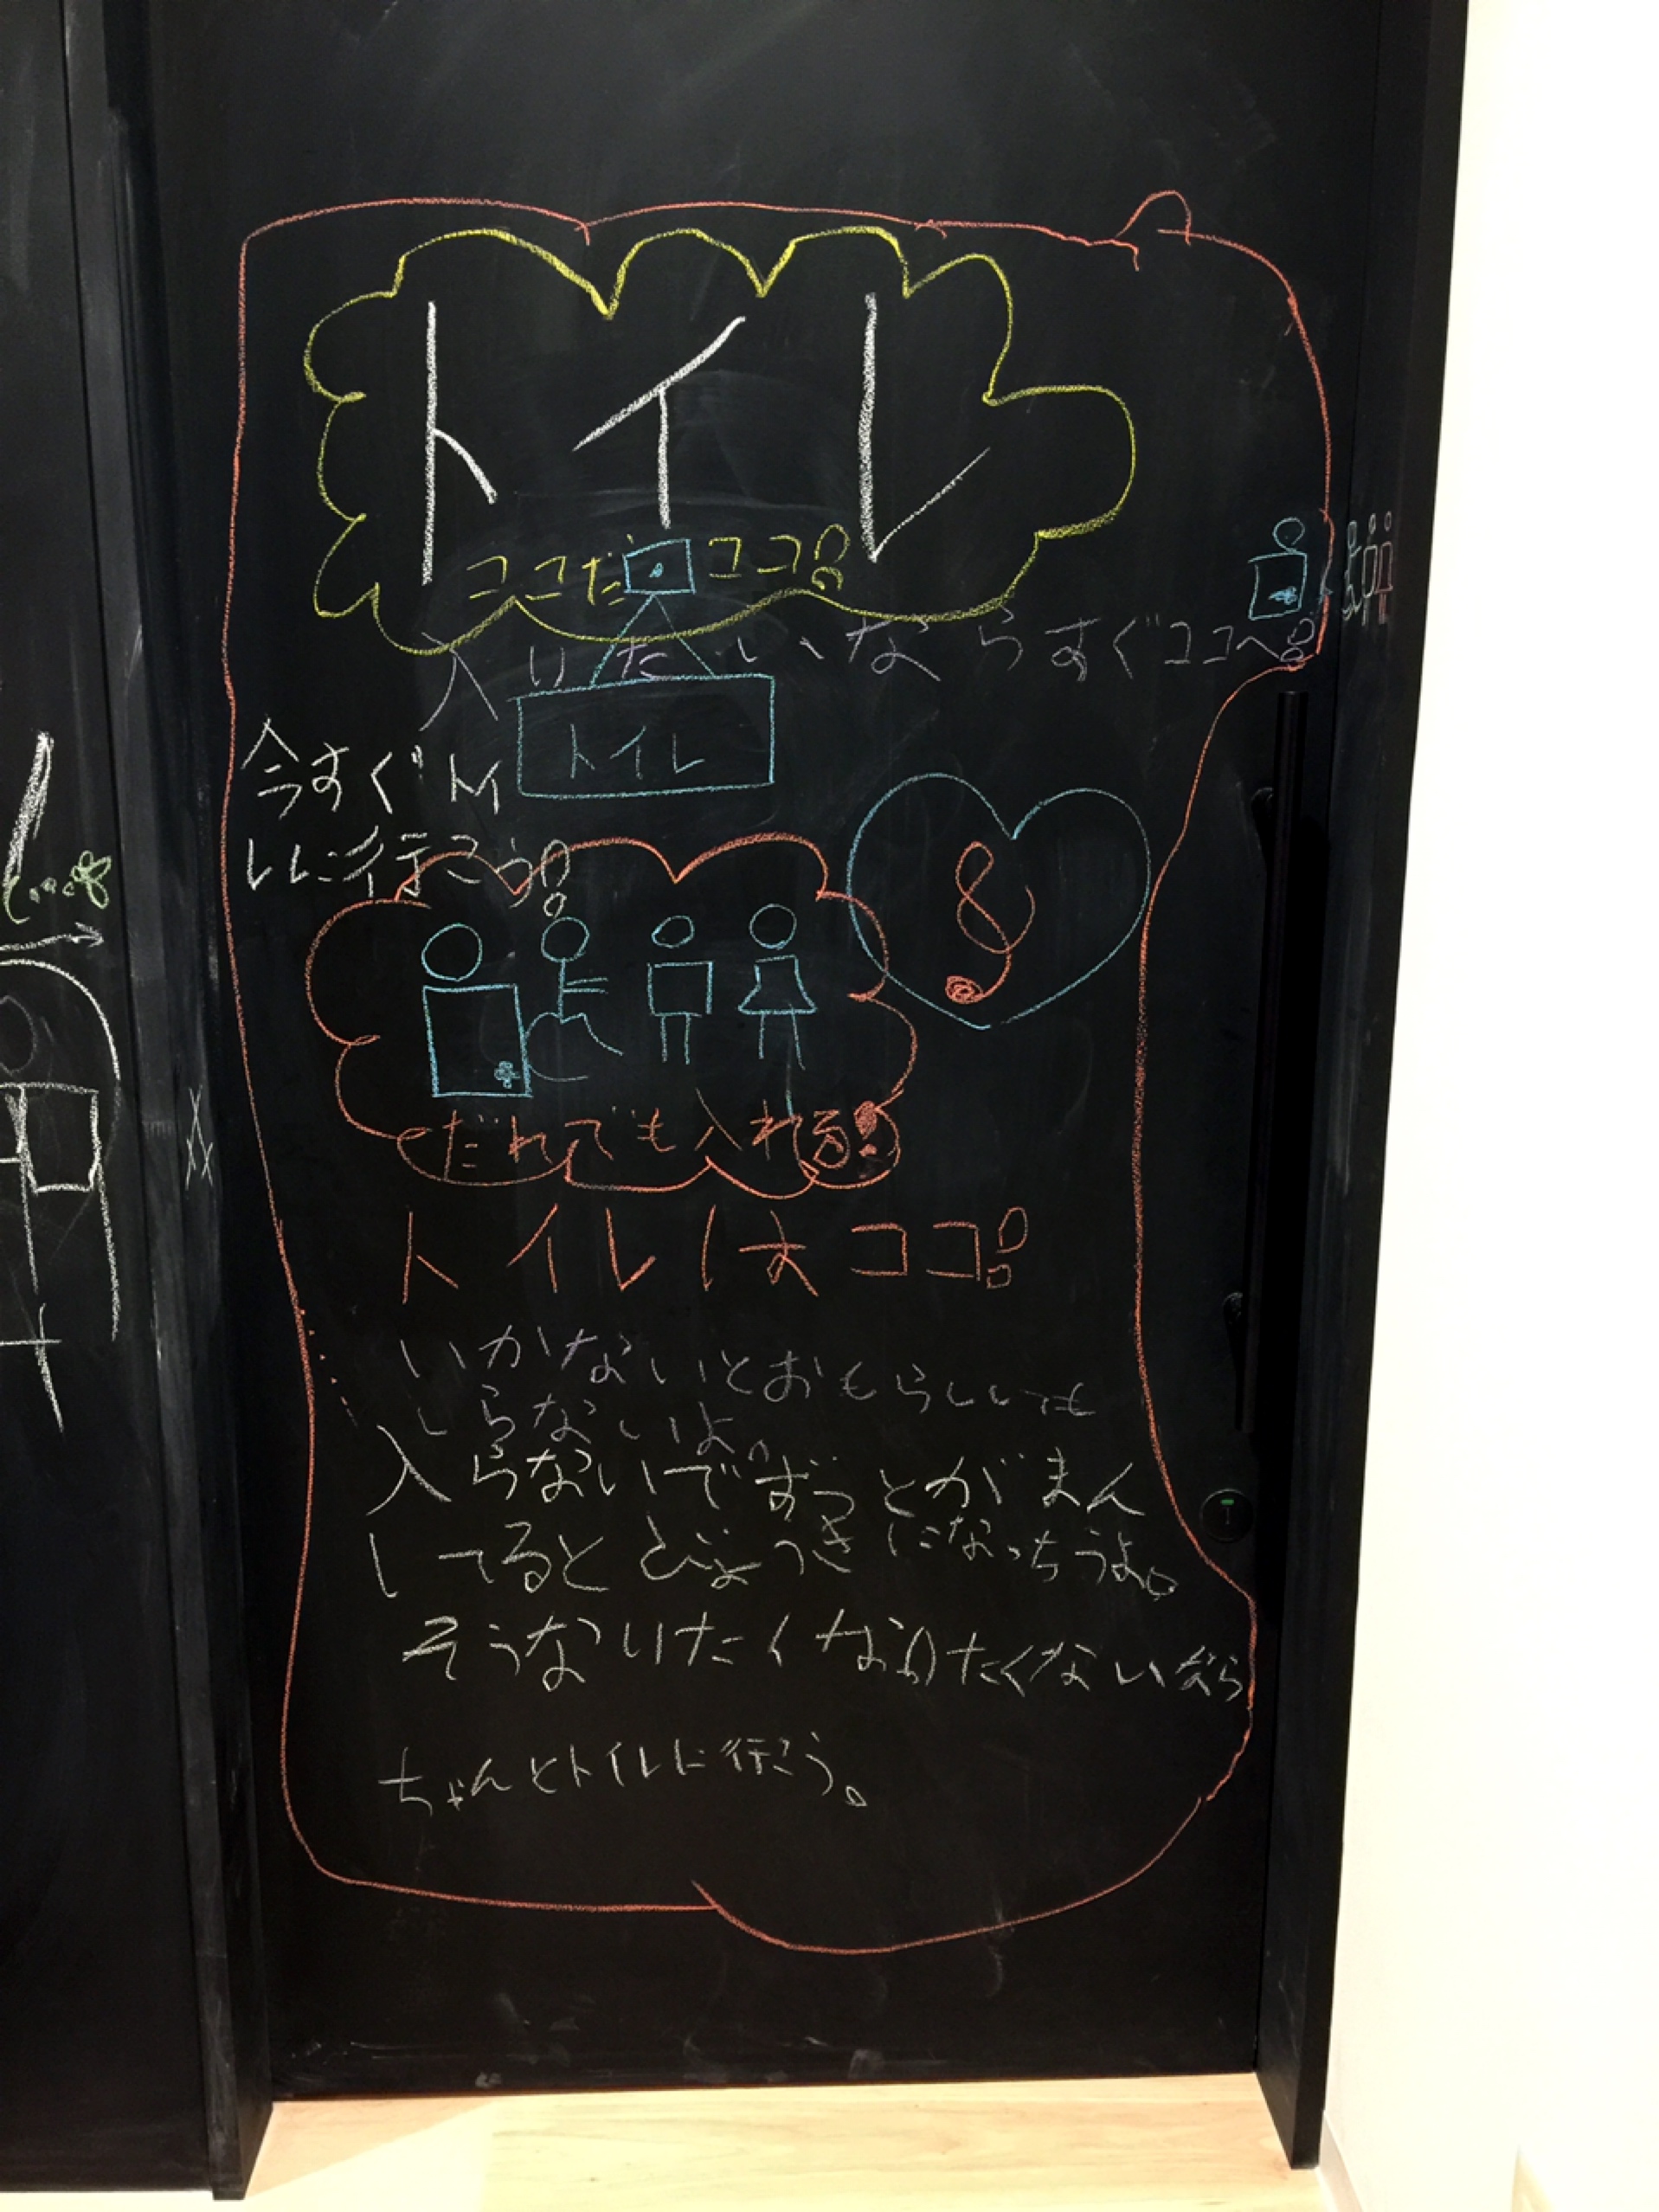 トイレ
ココだココ!
入りたいならすぐココへ!
トイレ
今すぐトイ
レに行こう!
だれでも入れる!
トイレはココ!
いかないとおもらししても
しらないよ。
入らないでずっとがまん
してるとびょうきになっちうよ。
そうなりたくなりたくないなら
ちゃんとトイレに行こう。